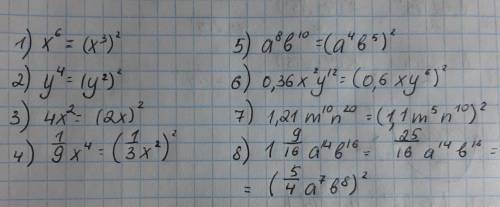 1) x⁶ = (x³)²
2) y⁴ = (y²)²
3) 4x² = (2x)²
4) 1/9 x⁴ = (1/3 x²)²
5) a⁸b¹⁰ = (a⁴b⁵)²
6) 0,36x²y¹² = (0,6xy⁶)²
7) 1,21m¹⁰n²⁰ = (1,1m⁵n¹⁰)²
8) 1 9/16 a¹⁴b¹⁶ = 25/16 a¹⁴b¹⁶ =
= (5/4 a⁷b⁸)²